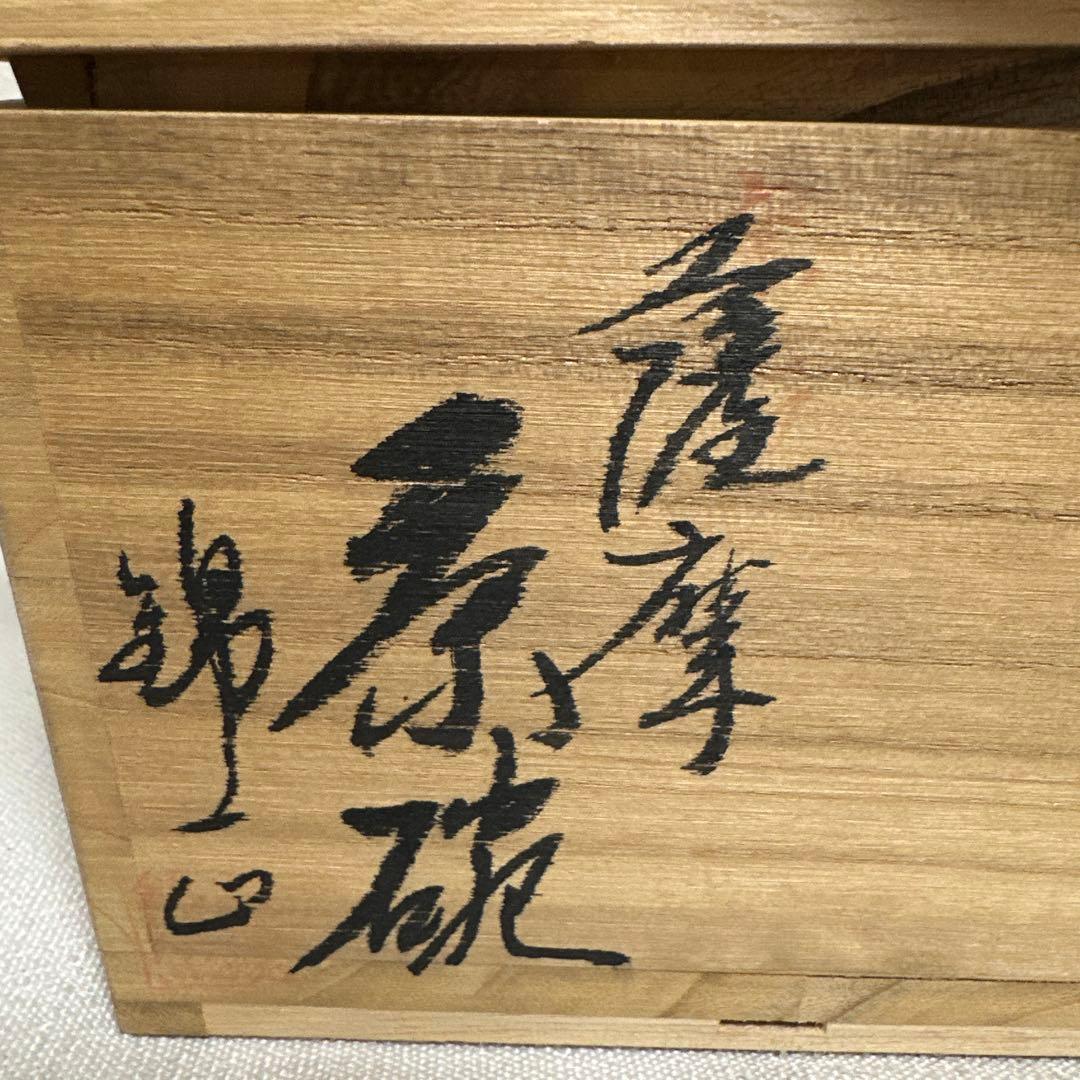 薩摩
茶碗
錦山